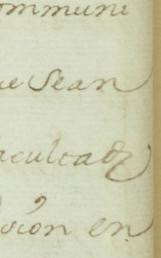 ommuni
ue Sean
acultad
ssion en